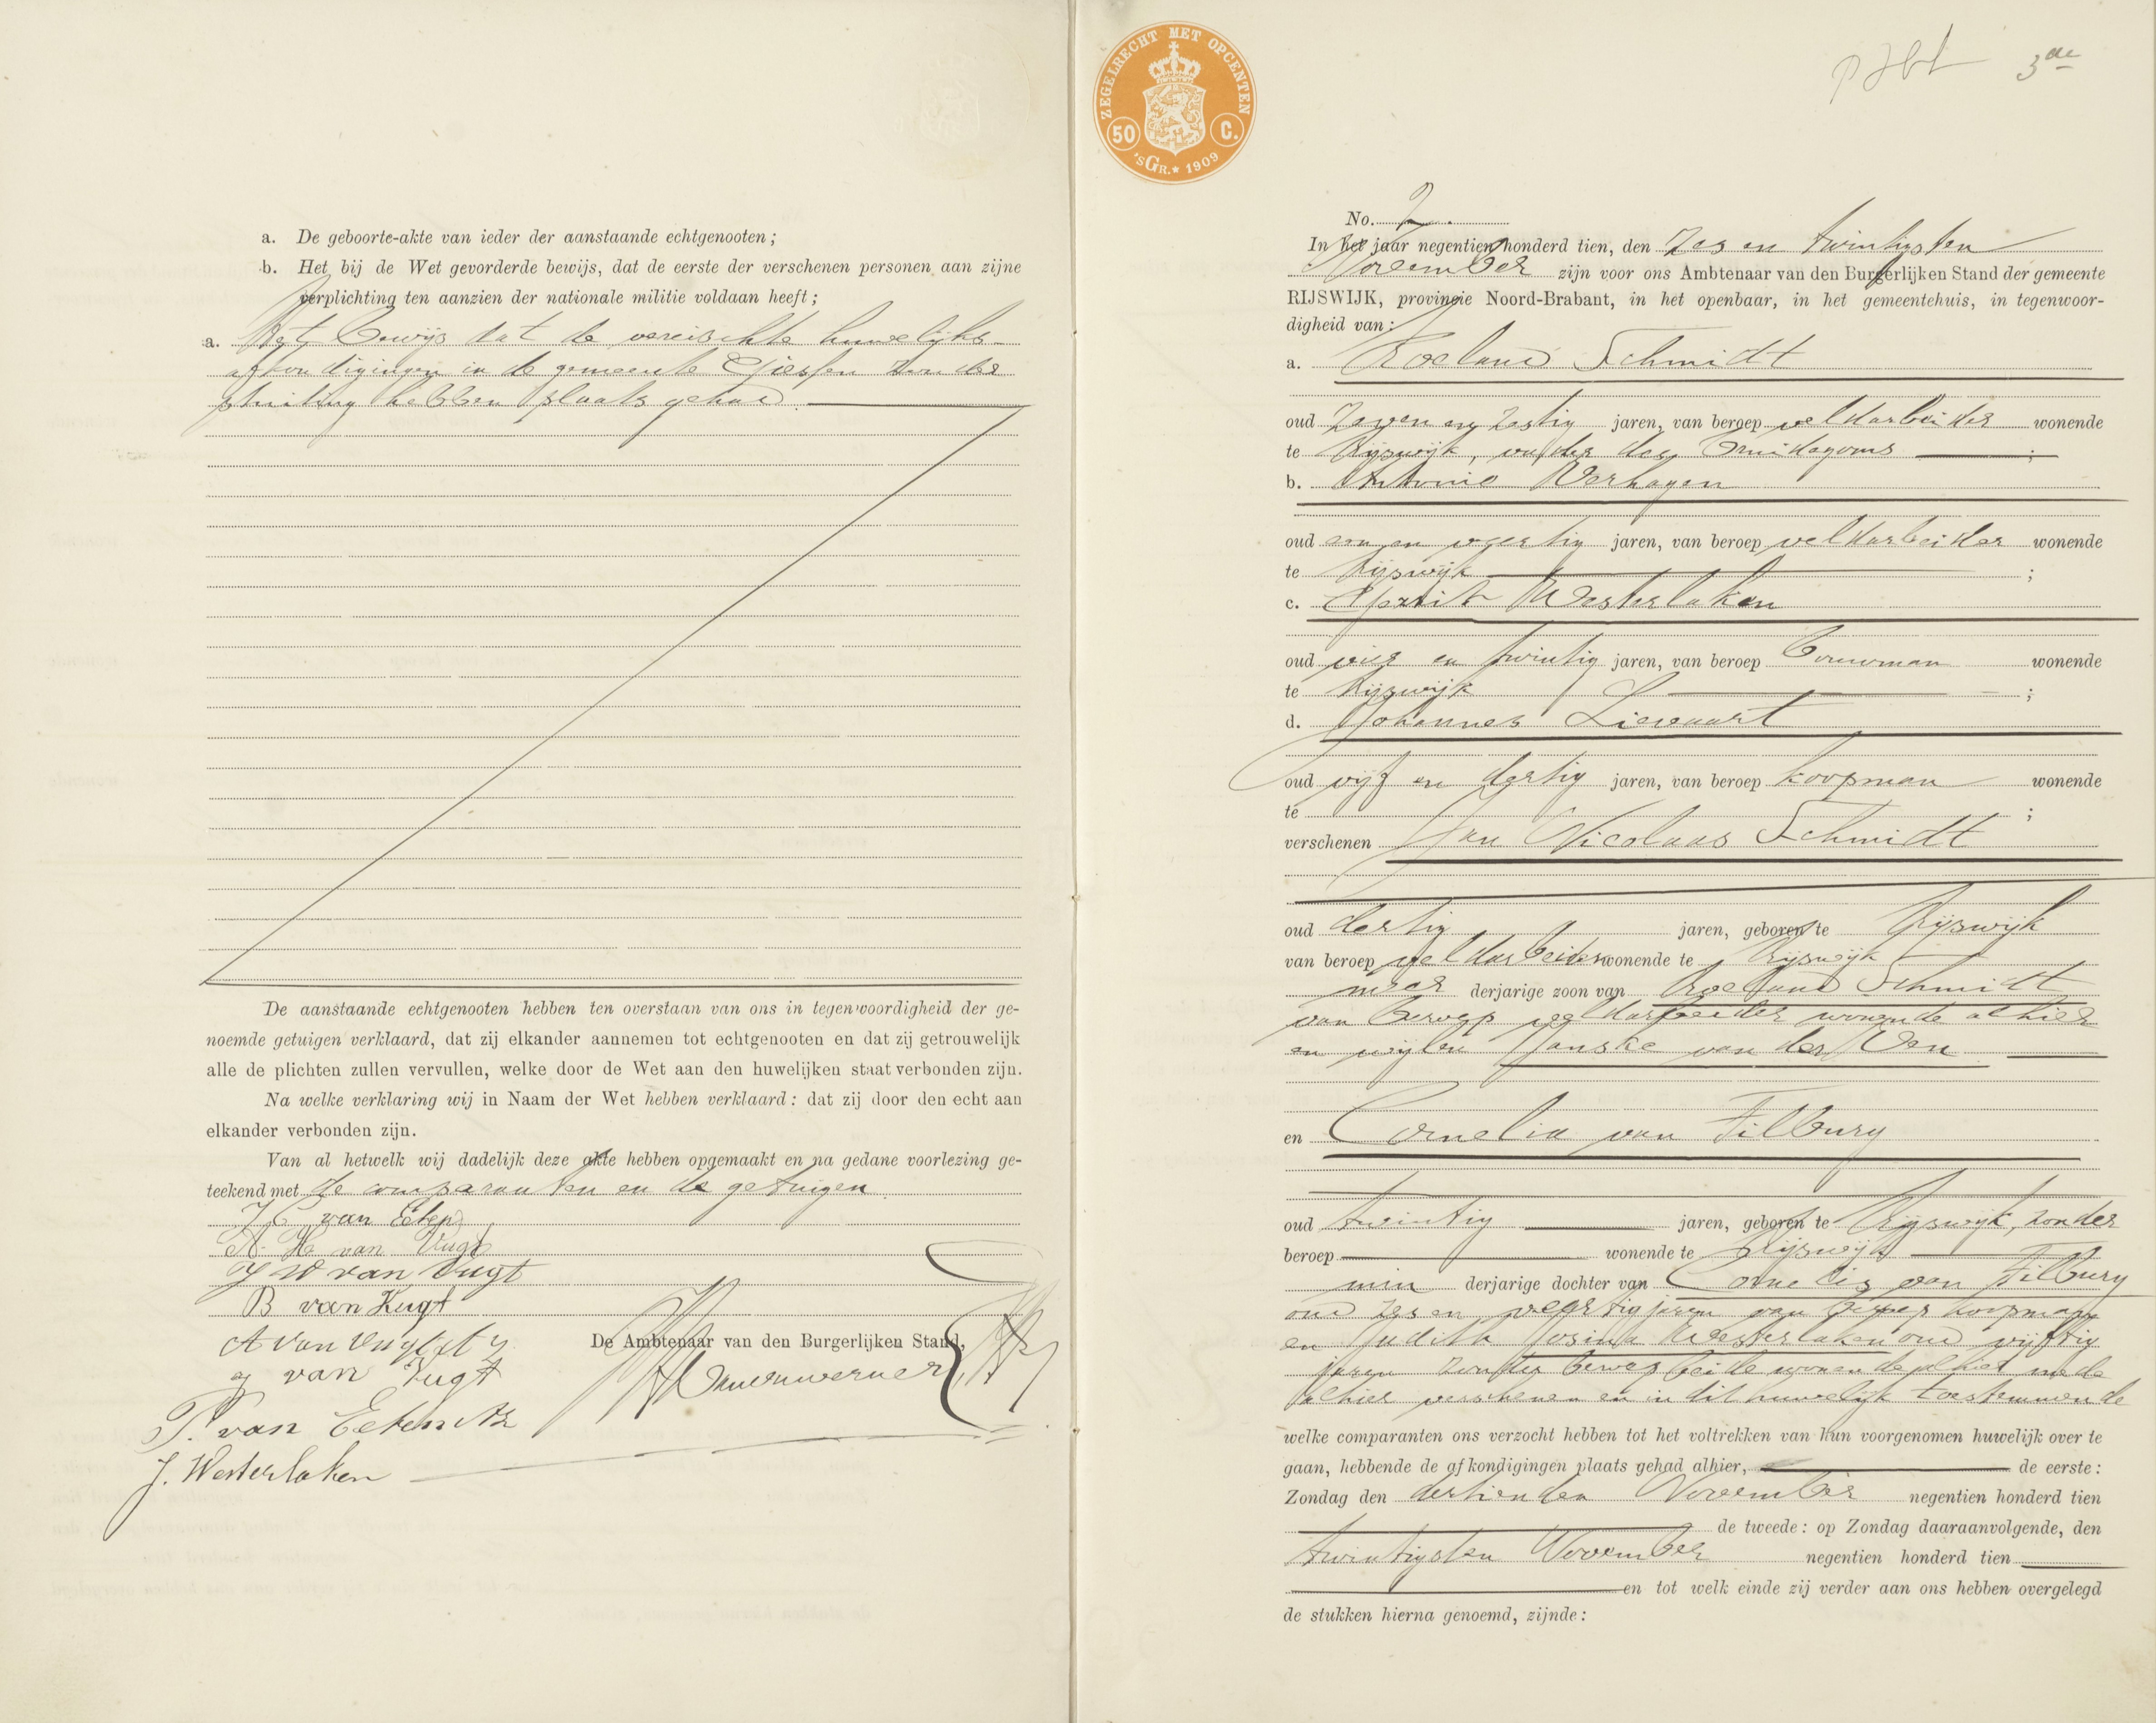 a. De geboorte-akte van ieder der aanstaande echtgenooten;
b. Het bij de Wet gevorderde bewijs, dat de eerste der verschenen personen aan zijne
verplichting ten aanzien der nationale militie voldaan heeft;
a. Het bewijs dat de vereischte huwelijks-
afkondigingen in de gemeente Giessen zonder
stuiting hebben plaats gehad.
De aanstaande echtgenooten hebben ten overstaan van ons in tegenwoordigheid der ge-
noemde getuigen verklaard, dat zij elkander aannemen tot echtgenooten en dat zij getrouwelijk
alle de plichten zullen vervullen, welke door de Wet aan den huwelijken staat verbonden zijn.
Na welke verklaring wij in Naam der Wet hebben verklaard: dat zij door den echt aan
elkander verbonden zijn.
Van al hetwelk wij dadelijk deze akte hebben opgemaakt en na gedane voorlezing ge-
teekend met de comparanten en de getuigen
van Eten
van Vugt
J W van Vugt
B van Vugt
A van Vugt
De Ambtenaar van den Burgerlijken Stand,
van Vugt
P. van Eeten
J. Westerlaken
ZEGELRECHT MET OPCENTEN
50 C.
'sGR. * 1909
3de
No. 2.
In het jaar negentien honderd tien, den zes en twintigsten
November zijn voor ons Ambtenaar van den Burgerlijken Stand der gemeente
RIJSWIJK, provincie Noord-Brabant, in het openbaar, in het gemeentehuis, in tegenwoor-
digheid van:
a. Roeland Schmidt
oud zeven en zestig jaren, van beroep veldarbeider wonende
te Rijswijk, vader des bruidegoms ;
b. Antonie Verhagen
oud een en veertig jaren, van beroep veldarbeider wonende
te Rijswijk ;
c. Gerrit Westerlaken
oud vier en twintig jaren, van beroep bouwman wonende
te Rijswijk ;
d. Johannes Lievaart
oud vijf en dertig jaren, van beroep koopman wonende
te ;
verschenen Jan Nicolaas Schmidt
oud dertig jaren, geboren te Rijswijk
van beroep veldarbeider wonende te Rijswijk
meer derjarige zoon van Roeland Schmidt
van beroep veldarbeider wonende alhier
en wijlen Janske van der Ven
en Cornelia van Tilburg
oud twintig jaren, geboren te Rijswijk, zonder
beroep wonende te Rijswijk
min derjarige dochter van Cornelis van Tilburg
oud zes en veertig jaren van beroep koopman
en Judith Josina Westerlaken oud vijftig
jaren zonder beroep beide wonende alhier mede
alhier verschenen en in dit huwelijk toestemmende
welke comparanten ons verzocht hebben tot het voltrekken van hun voorgenomen huwelijk over te
gaan, hebbende de afkondigingen plaats gehad alhier, de eerste:
Zondag den dertienden November negentien honderd tien
de tweede: op Zondag daaraanvolgende, den
twintigsten November negentien honderd tien
en tot welk einde zij verder aan ons hebben overgelegd
de stukken hierna genoemd, zijnde: